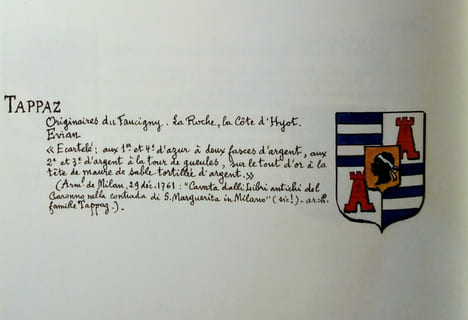 TAPPAZ
Originaires du Faucigny. La Roche, la Côte d'Hyot.
Evian.
« Ecartelé: aux 1er et 4e d'azur à deux fasces d'argent, aux
2e et 3e d'argent à la tour de gueules, sur le tout d'or à la
tête de maure de sable tortillée d'argent.»
(Arm! de Milan, 29 déc. 1761: "Cavata dalli Libri antichi del
nella contrada di S. Marguerita in Milano" (sic!) - arch.
famille Tappaz.).